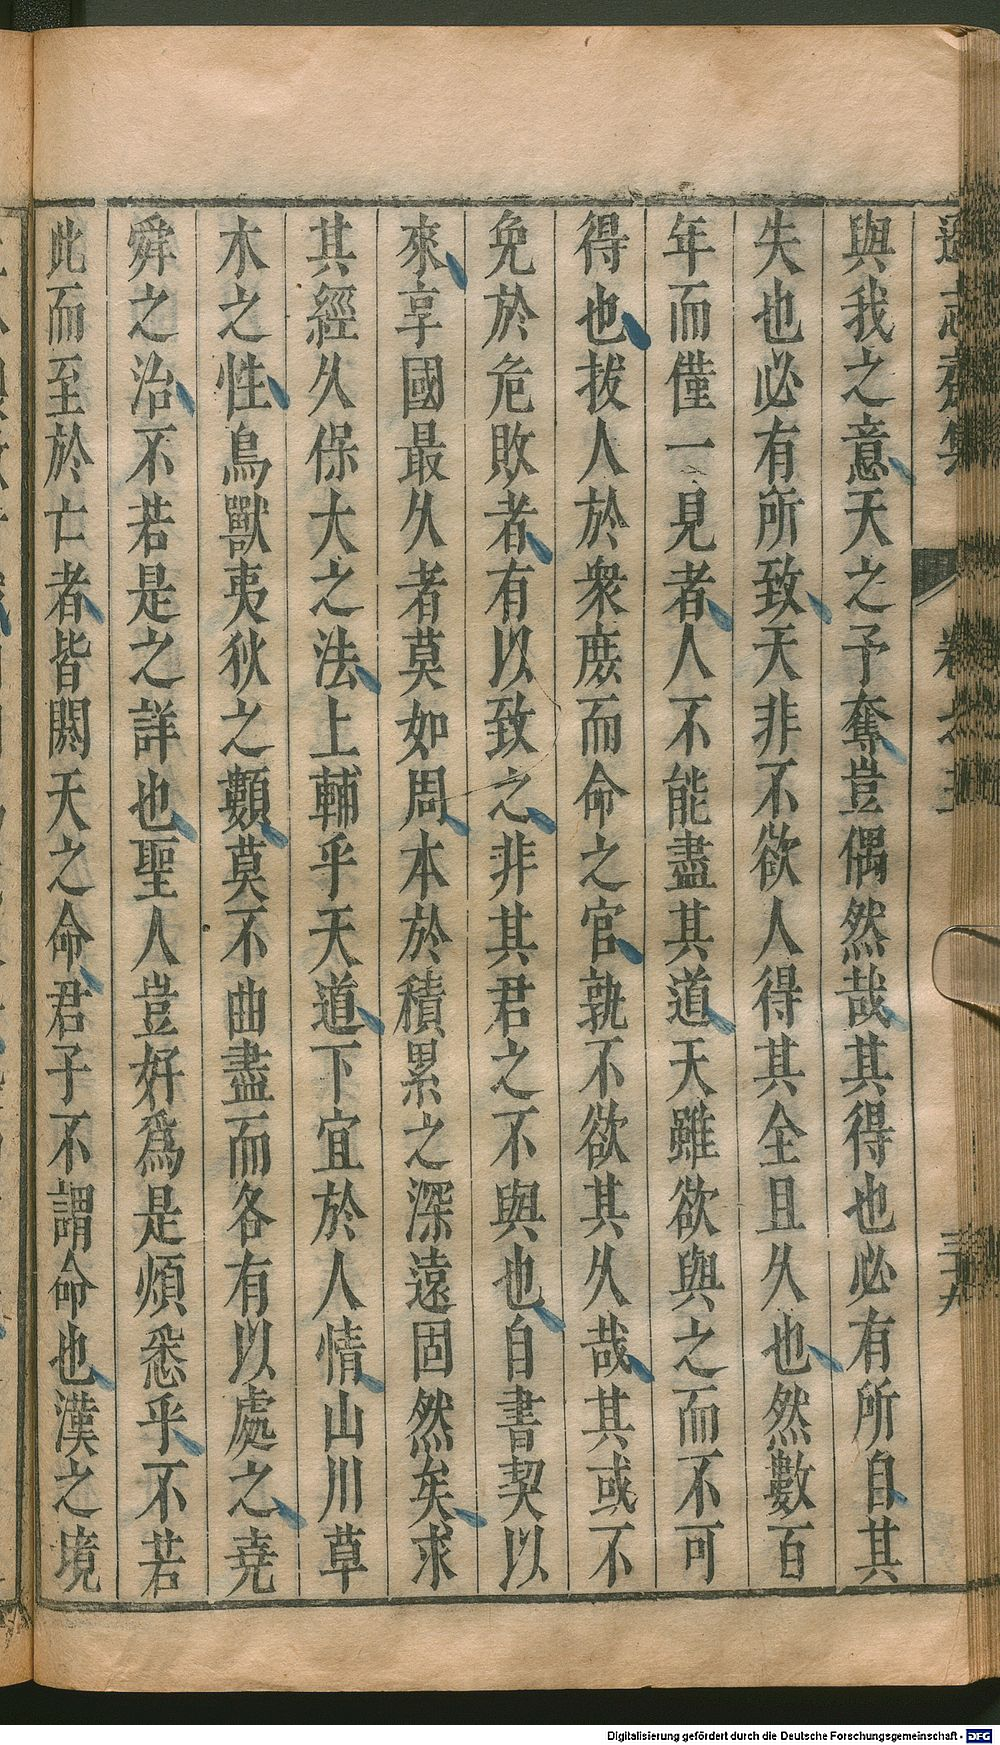 遜志齋集 卷之五 三十九
與我之意天之予奪豈偶然哉其得也必有所自其
失也必有所致天非不欲人得其全且久也然數百
年而僅一見者人不能盡其道天雖欲與之而不可
得也拔人於衆庶而命之官孰不欲其久哉其或不
免於危敗者有以致之非其君之不與也自書契以
來享國最久者莫如周本於積累之深遠固然矣求
其經久保大之法上輔乎天道下宜於人情山川草
木之性鳥獸夷狄之顙莫不曲盡而各有以處之堯
舜之治不若是之詳也聖人豈好爲是煩悉乎不若
此而至於亡者皆闕天之命君子不謂命也漢之境
Digitalisierung gefördert durch die Deutsche Forschungsgemeinschaft - DFG